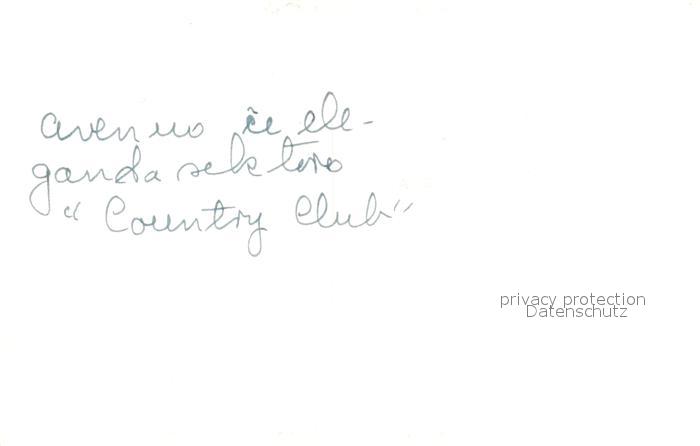 avenuo ĉe ele-
ganda sektoro
"Country Club"
privacy protection
Datenschutz